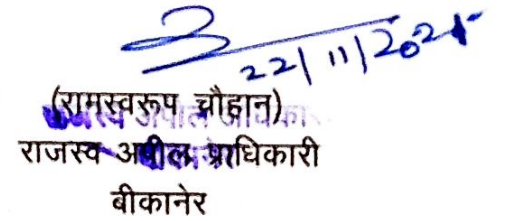 22/11/2021
(रामस्वरूप चौहान)
राजस्व अपील प्राधिकारी
बीकानेर